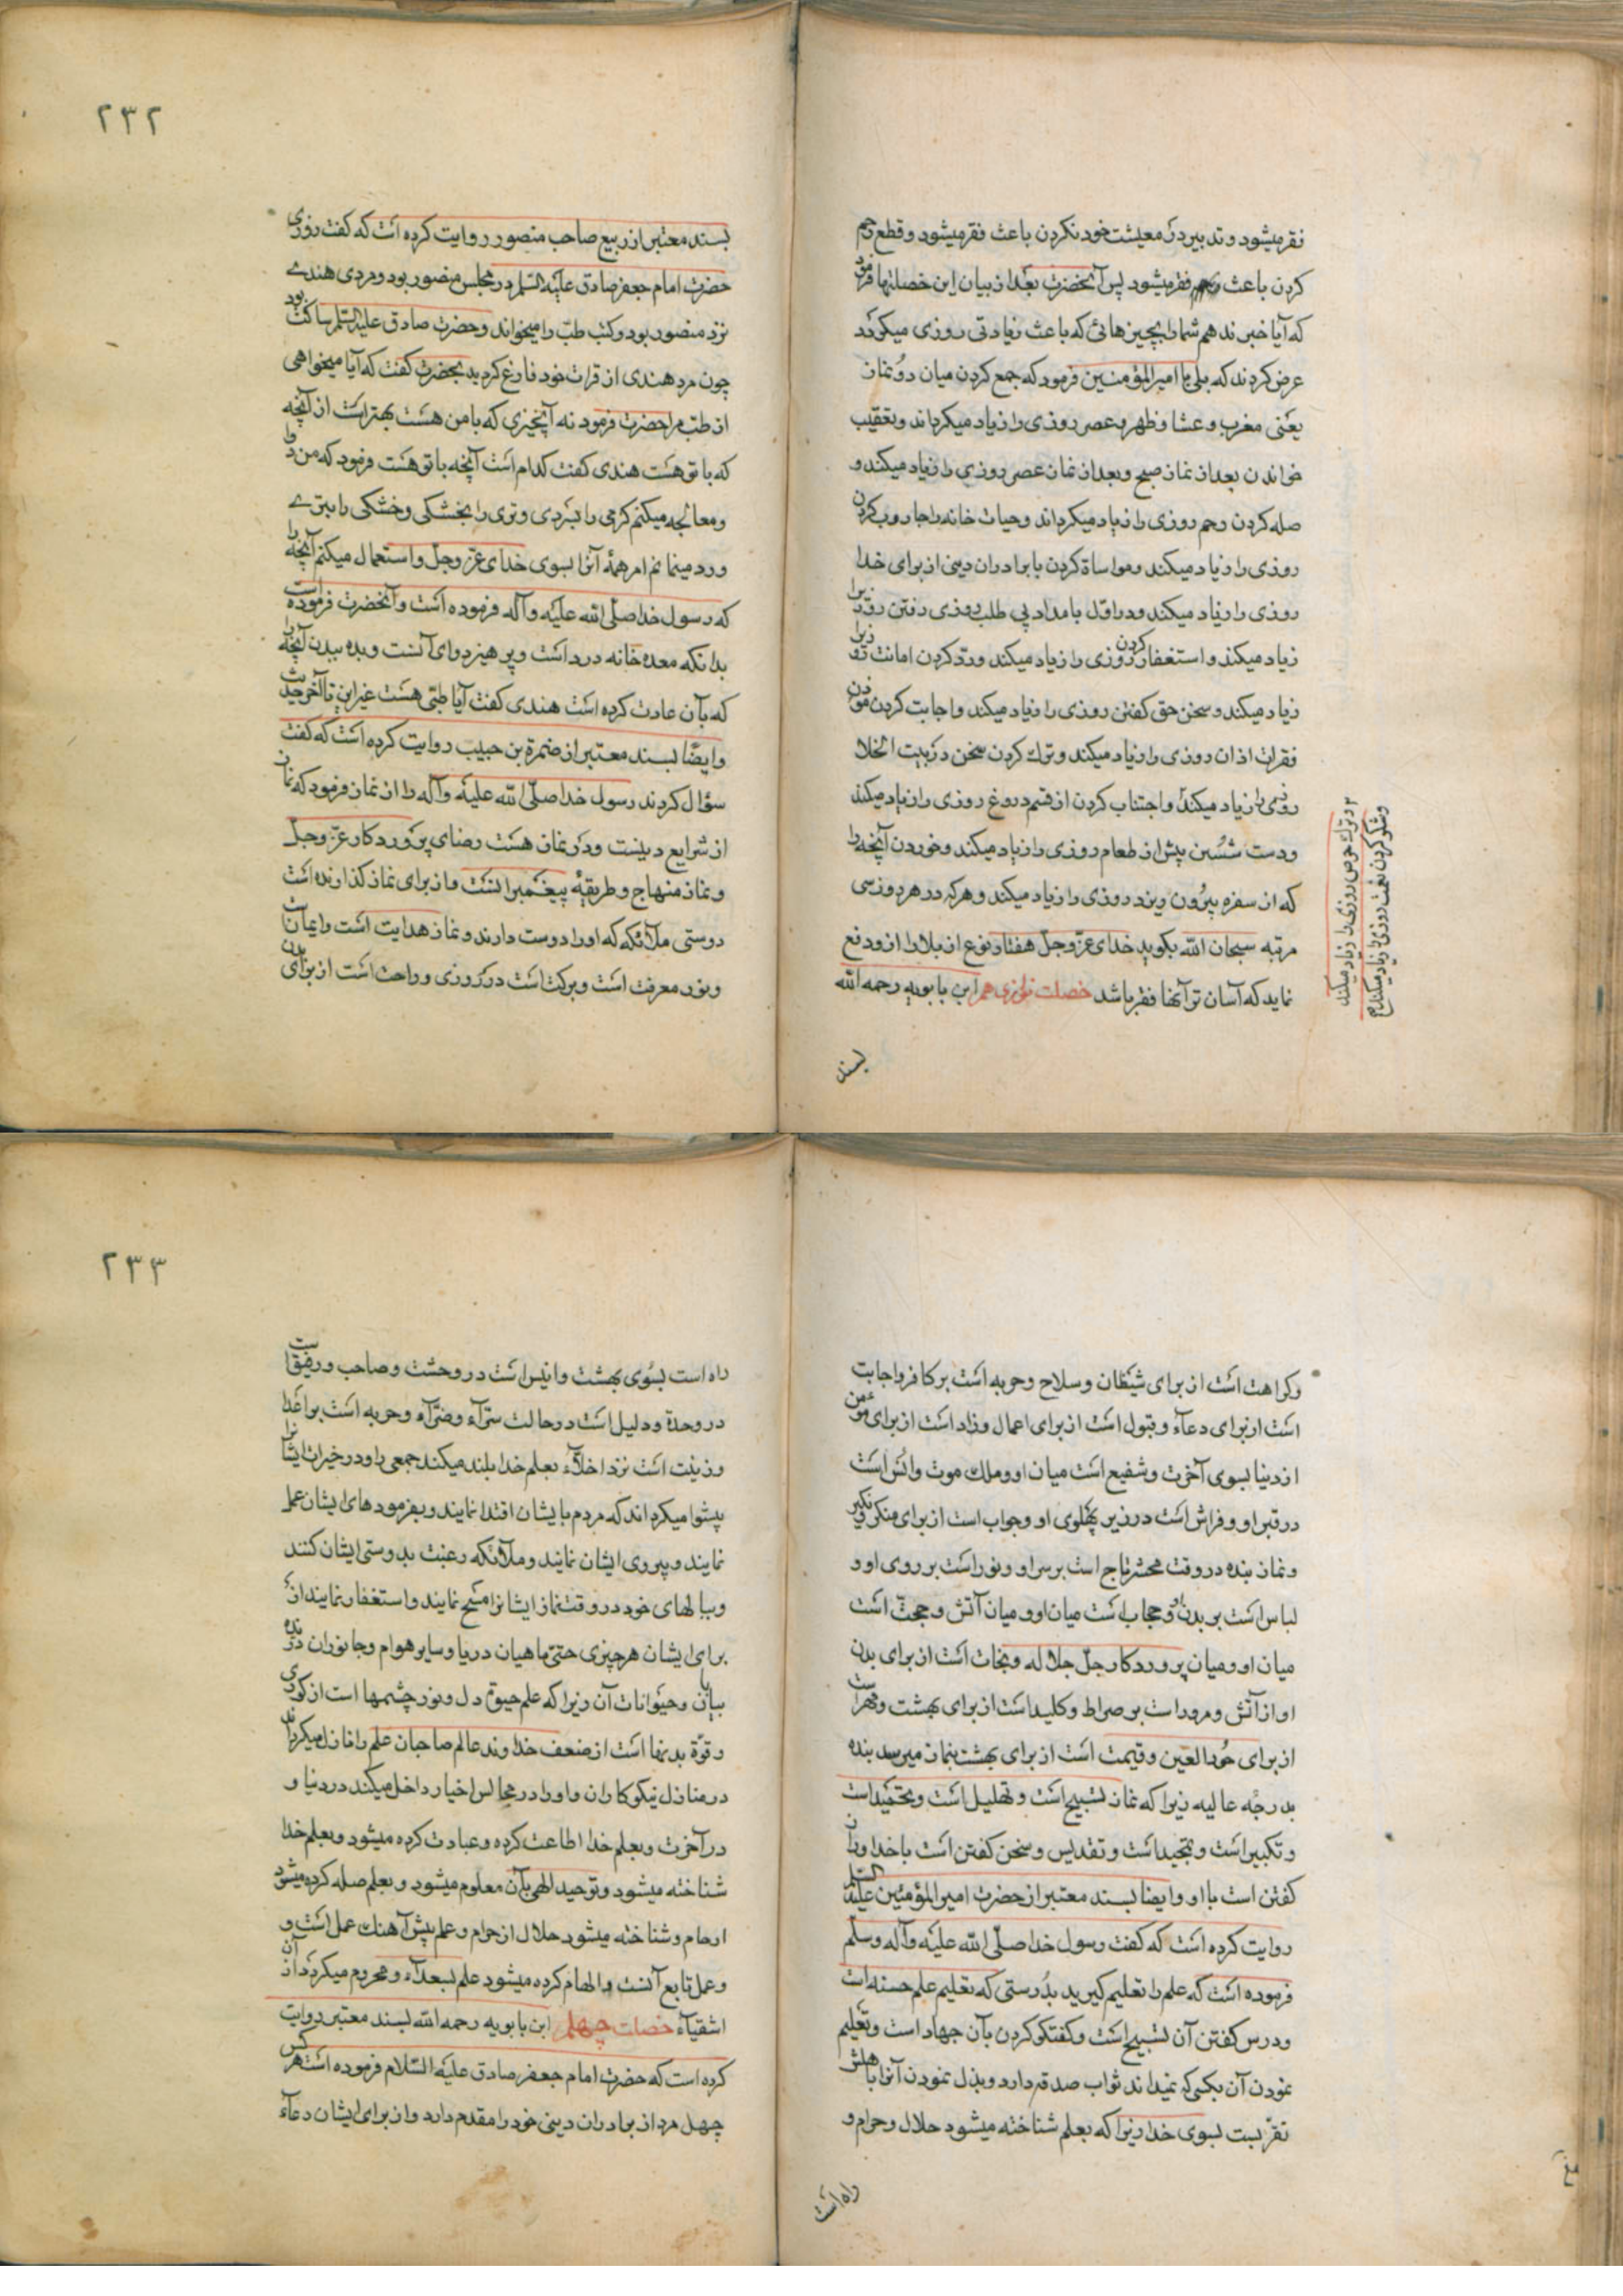 فقر میشود و تدبیر در معیشت خود نکردن باعث فقر میشود و قطع رحم
کردن باعث فقر میشود پس آنحضرت بعد از بیان این خصلتها فرمود
که آیا خبر ندهم شما را بچیزهائی که باعث زیادتی روزی میکردد
عرض کردند که بلی یا امیرالمؤمنین فرمود که جمع کردن میان دو نماز
یعنی مغرب و عشا و ظهر و عصر روزی را زیاد میکرداند و تعقیب
خواندن بعد از نماز صبح و بعد از نماز عصر روزی را زیاد میکند و
صله کردن رحم روزی را زیاد میکرداند و حیات خانه را جاروب کردن
روزی را زیاد میکند و مواساة کردن با برادران دینی از برای خدا
روزی را زیاد میکند و در اوّل بامداد پی طلب روزی رفتن روزیرا
زیاد میکند و استغفار کردن روزی را زیاد میکند و ردّ کردن امانت روزیرا
زیاد میکند و سخن حق کفتن روزی را زیاد میکند و اجابت کردن مؤذن
فقرات اذان روزی را زیاد میکند و ترک کردن سخن در بیت الخلا
روزی را زیاد میکند و اجتناب کردن از قسم دروغ روزی را زیاد میکند
و دست شستن پیش از طعام روزی را زیاد میکند و خوردن آنچه را
که از سفره بیرون ریزد روزی را زیاد میکند و هرکه در هر روز سی
مرتبه سبحان الله بکوید خدای عزّ وجلّ هفتاد نوع از بلا را از او دفع
نماید که آسان تر آنها فقر باشد خصلت سی‌ام ابن بابویه رحمه الله
و ترک حرص روزی را زیاد میکند
و شکر کردن نعمت روزی را زیاد میکند
بسند
۲۳۲
بسند معتبر از ربیع صاحب منصور روایت کرده است که کفت روزی
حضرت امام جعفر صادق علیه السّلم در مجلس منصور بود و مردی هندی
نزد منصور بود و کتب طبّ را میخواند و حضرت صادق علیه السّلم ساکت بود
چون مرد هندی از قرات خود فارغ کردید بحضرت کفت که آیا میخواهی
از طبّ مرا حضرت فرمود نه آنچیزی که با من هست بهتر است از آنچه
که با تو هست هندی کفت کدام است آنچه با تو هست فرمود که من دوا
و معالجه میکنم کرمی را بسَردی و تری را بخشکی و خشکی را بتری
و رد مینمانم امر همهٔ آنرا بسوی خدای عزّ وجلّ و استعمال میکنم آنچه را
که رسول خدا صلّی الله علیه و آله فرموده است و آنحضرت فرموده است
بدانکه معده خانه درد است و پرهیز دوای آنست و بده ببدن آنچه را
که بآن عادت کرده است هندی کفت آیا طبّی هست غیر این تا آخر حدیث
و ایضًا بسند معتبر از ضمرة بن حبیب روایت کرده است که کفت
سؤال کردند رسول خدا صلّی الله علیه و آله را از نماز فرمود که نماز
از شرایع دینست و در نماز هست رضای پروردکار عزّ وجلّ
و نماز منهاج و طریقهٔ پیغمبرانست و از برای نماز کذارنده است
دوستی ملائکه که او را دوست دارند و نماز هدایت است و ایمانست
و نور معرفت است و برکت است در روزی و راحت است از برای بدن
وکراهت است از برای شیطان و سلاح و حربه است بر کافر و اجابت
است از برای دعاء و قبول است از برای اعمال و زاد است از برای مؤمن
از دنیا بسوی آخرت و شفیع است میان او و ملک موت و انس است
در قبر او و فراش است در زیر پهلوی او و جواب است از برای منکر و نکیر
و نماز بنده در وقت محشر تاج است بر سر او و نور است بر روی او و
لباس است بر بدن او و حجاب است میان او و میان آتش و حجّت است
میان او و میان پروردکار جلّ جلاله و نجات است از برای بدن
او از آتش و مرور است بر صراط و کلید است از برای بهشت و مهر است
از برای حُور العین و قیمت است از برای بهشت بنماز میرسد بنده
بدرجه عالیه زیرا که نماز تسبیح است و تهلیل است و تحمید است
و تکبیر است و تمجید است و تقدیس و سخن کفتن است با خدا و راز
کفتن است با او و ایضا بسند معتبر از حضرت امیرالمؤمنین علیه السّلم
روایت کرده است که کفت رسول خدا صلّی الله علیه و آله و سلّم
فرموده است که علم را تعلیم کیرید بدُرستی که تعلیم علم حسنه است
و درس کفتن آن تسبیح است و کفتکو کردن بآن جهاد است و تعلیم
نمودن آن بکسی که نمیداند ثواب صدقه دارد و بذل نمودن آنرا باهلش
تقرّبست بسوی خدا زیرا که بعلم شناخته میشود حلال و حرام و
راه است
۲۳۳
راه است بسُوی بهشت و انیس است در وحشت و صاحب و رفیق است
در وحدة و دلیل است در حالت سرّآء و ضرّآء و حربه است بر اعدا
و زینت است نزد اخلّاء بعلم خدا بلند میکند جمعی را و در خیرات ایشانرا
پیشوا میکرداند که مردم بایشان اقتدا نمایند و بفرمودهای ایشان عمل
نمایند و پیروی ایشان نمایند و ملآئکه رغبت بدوستی ایشان کنند
و ببالهای خود در وقت نماز ایشانرا مسح نمایند و استغفار نمایند از
برای ایشان هر چیزی حتّی ماهیان دریا و سایر هوام و جانوران درنده
بیابان و حیوانات آن زیرا که علم حیوة دل و نور چشمها است از کوری
و قوّة بدنها است از ضعف خداوند عالم صاحبان علم را نازل میکرداند
در منازل نیکوکاران و او را در مجالس اخیار داخل میکند در دنیا و
در آخرت و بعلم خدا اطاعت کرده و عبادت کرده میشود و بعلم خدا
شناخته میشود و توحید الهی بآن معلوم میشود و بعلم صله کرده میشود
ارحام و شناخته میشود حلال از حرام و علم پیش آهنک عمل است و
و عمل تابع آنست و الهام کرده میشود علم بسعدآء و محروم میکردد از آن
اشقیآء خصلت چهلم ابن بابویه رحمه الله بسند معتبر روایت
کرده است که حضرت امام جعفر صادق علیه السّلام فرموده است هر کس
چهل مرد از برادران دینی خود را مقدم دارد و از برای ایشان دعآء